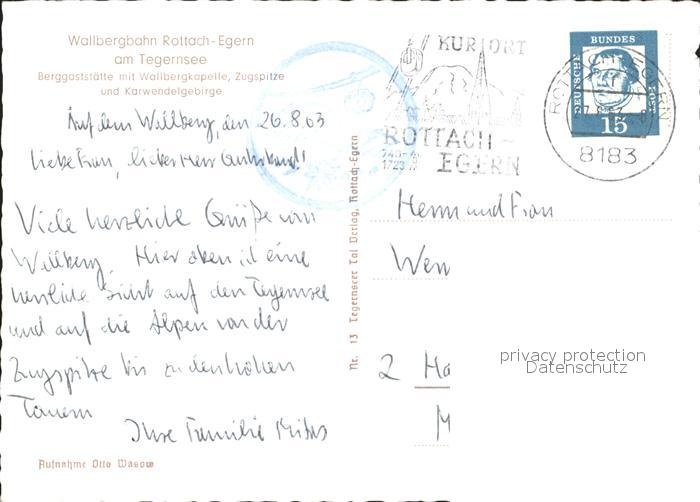 Wallbergbahn Rottach-Egern
am Tegernsee
Berggaststätte mit Wallbergkapelle, Zugspitze
und Karwendelgebirge
Auf dem Wallberg, den 26.8.63
Liebe Frau, lieber Herr
Viele herzliche Grüße vom
Wallberg. Hier oben ist eine
herrliche Sicht auf den Tegernsee
und auf die Alpen von der
Zugspitze bis zu den hohen
Tauern
Ihre Familie
Aufnahme Otto Wasow
Nr. 13 Tegernseer Tal Verlag, Rottach-Egern
KURORT
ROTTACH-
EGERN
740-
1723 m
DEUTSCHE
BUNDES
POST
15
ROTTACH-EGERN
8183
Herrn und Frau
Wen
2 Ha
M
privacy protection
Datenschutz